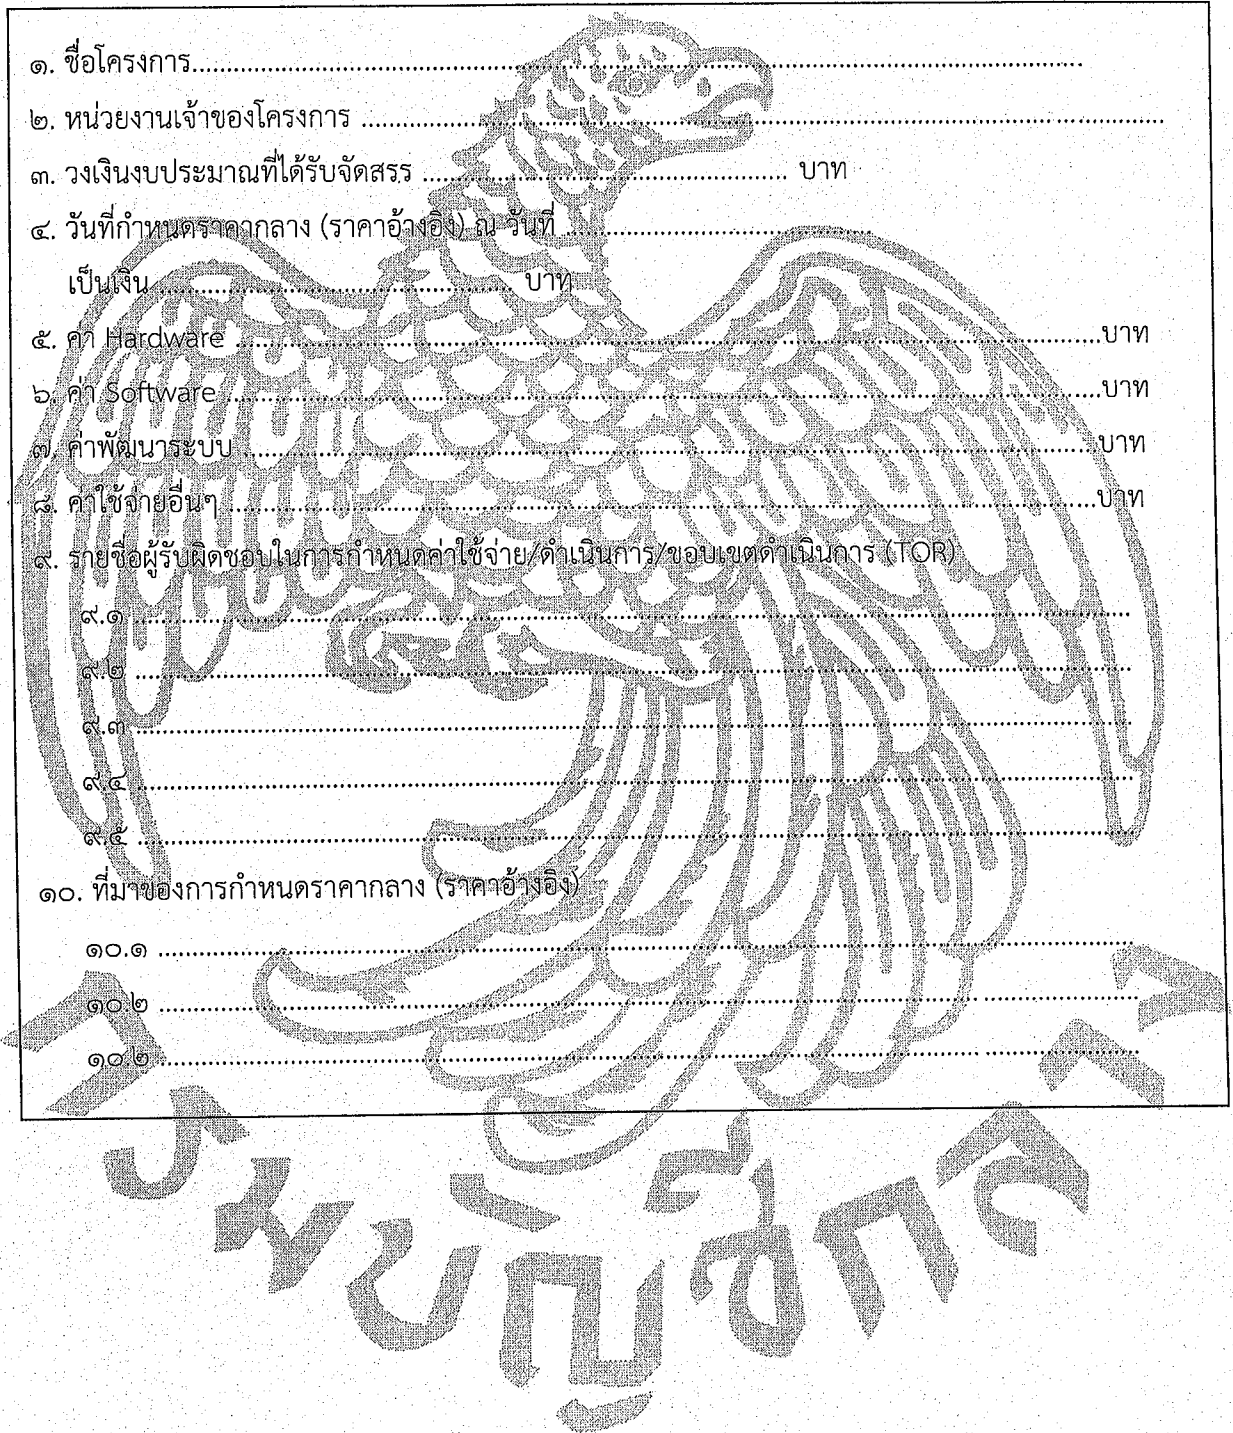 ๑. ชื่อโครงการ................................................................................
๒. หน่วยงานเจ้าของโครงการ ................................................................................
๓. วงเงินงบประมาณที่ได้รับจัดสรร ........................................ บาท
๔. วันที่กำหนดราคากลาง (ราคาอ้างอิง) ณ วันที่ ........................................
เป็นเงิน ........................................ บาท
๕. ค่า Hardware ................................................................................บาท
๖. ค่า Software ................................................................................บาท
๗. ค่าพัฒนาระบบ ................................................................................บาท
๘. ค่าใช้จ่ายอื่นๆ ................................................................................บาท
๙. รายชื่อผู้รับผิดชอบในการกำหนดค่าใช้จ่าย/ดำเนินการ/ขอบเขตดำเนินการ (TOR)
๙.๑ ................................................................................
๙.๒ ................................................................................
๙.๓ ................................................................................
๙.๔ ................................................................................
๙.๕ ................................................................................
๑๐. ที่มาของการกำหนดราคากลาง (ราคาอ้างอิง)
๑๐.๑ ................................................................................
๑๐.๒ ................................................................................
๑๐.๒ ................................................................................
กรมบัญชีกลาง